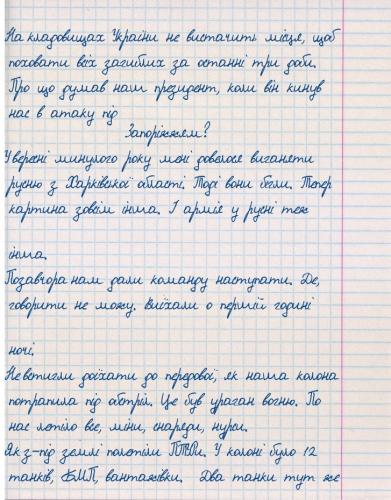 На кладовищах України не вистачить місця, щоб
поховати всіх загиблих за останні три доби.
Про що думав нам президент, коли він кинув
нас в атаку під
Запоріжжям?
У вересні минулого року мені довелося виганяти
русню з Харківської області. Тоді вони бігли. Тепер
картина зовсім інша. І армія у русні теж
інша.
Позавчора нам дали команду наступати. Де,
говорити не можу. Виїхали о першій годині
ночі.
Не встигли доїхати до передової, як наша колона
потрапила під обстріл. Це був ураган вогню. По
нас летіло все, міни, снаряди, нурси.
Як з-під землі полетіли ПТРи. У колоні було 12
танків, БМП, вантажівки. Два танки тут же